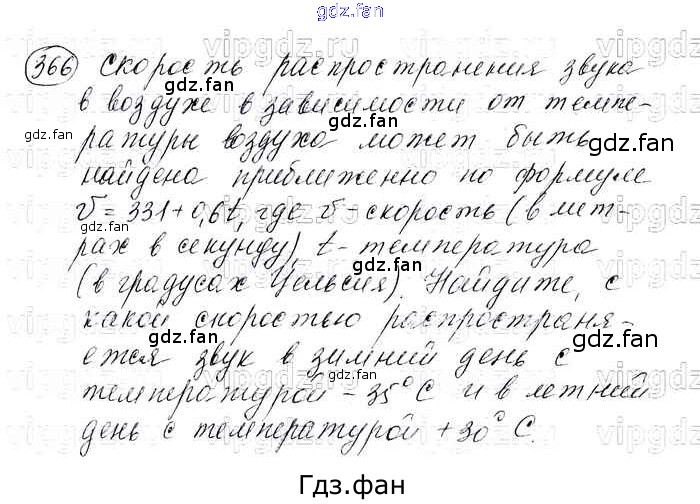 gdz.fan
366 Скорость распространения звука
в воздухе в зависимости от темпе-
gdz.fan gdz.fan
ратуры воздуха может быть
gdz.fan
найдена приближенно по формуле
v = 331 + 0,6t, где v - скорость (в мет-
рах в секунду), t - температура
gdz.fan gdz.fan
(в градусах Цельсия). Найдите, с
какой скоростью распространя-
gdz.fan gdz.fan
ется звук в зимний день с
температурой - 35° С и в летний
gdz.fan gdz.fan
день с температурой + 30° С.
Гдз.фан